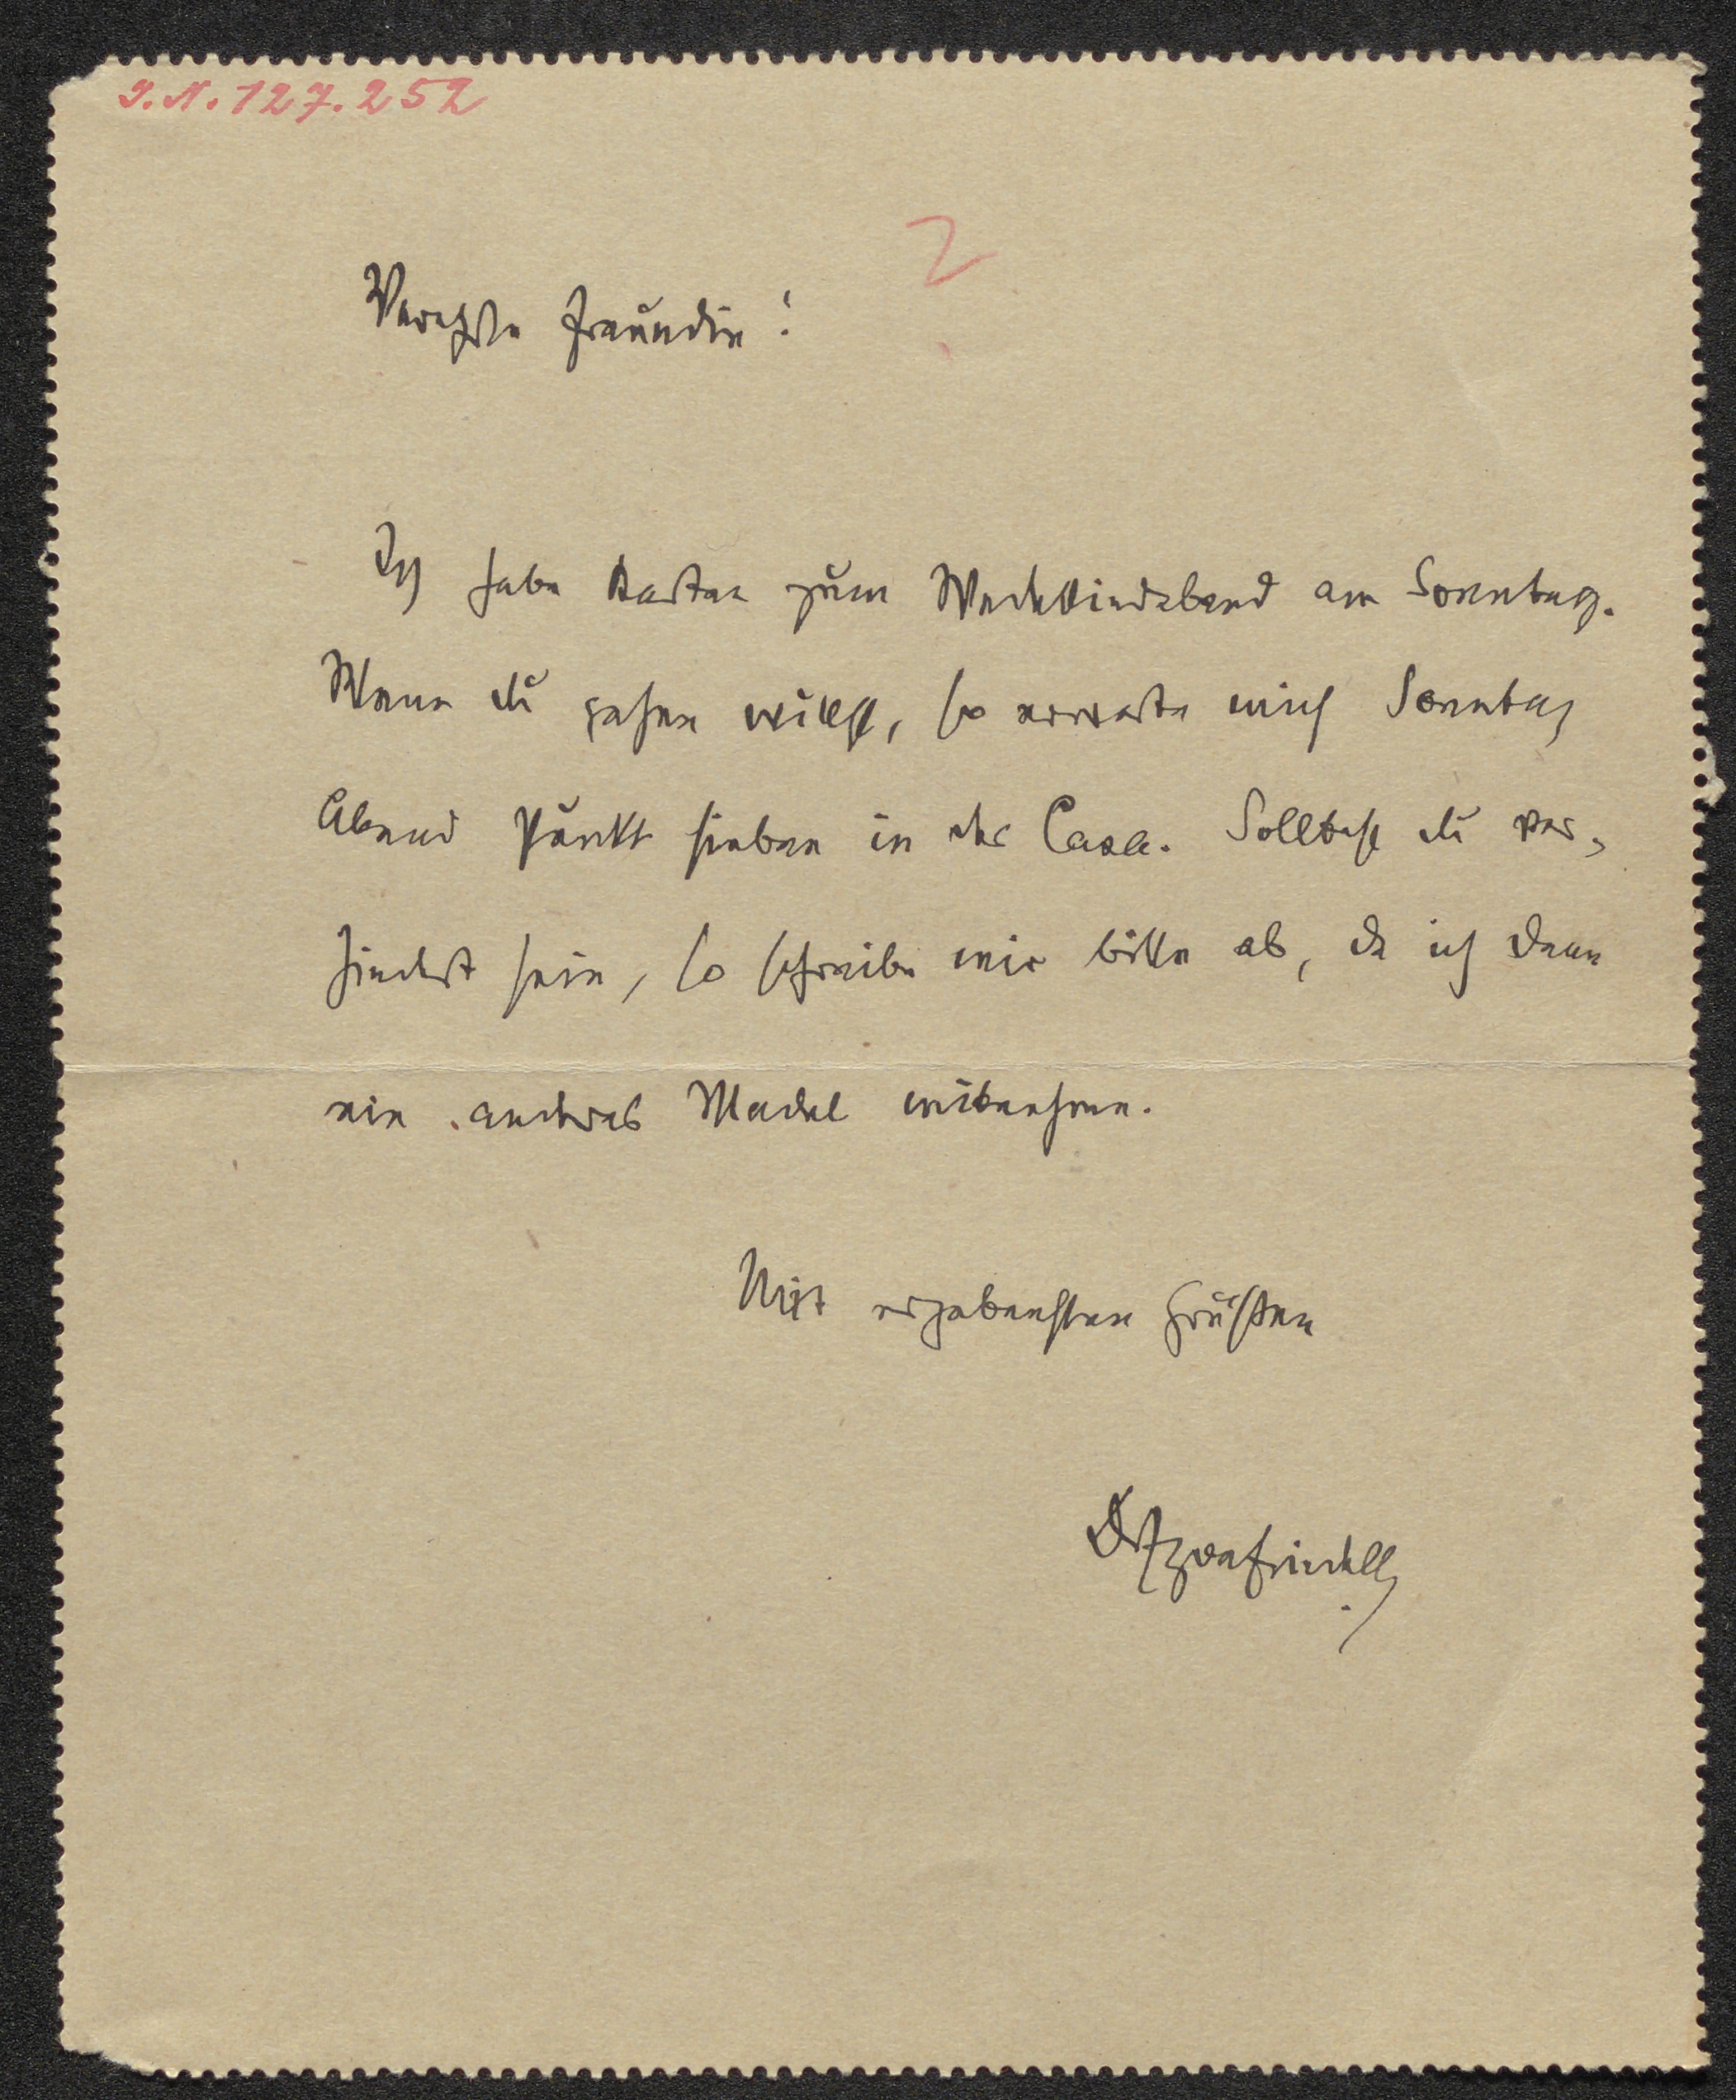 I.N. 127.252
2
Verehrte Freundin!
Ich habe Karten zum Wedekindabend am Sonntag.
Wenn du gehen willst, so erwarte mich Sonntag
Abend Punkt sieben in der Casa. Solltest du ver-
hindert sein, so schreibe mir bitte ab, da ich dann
ein andres Madel mitnehme.
Mit ergebensten Grüßen
DrEgonFriedell